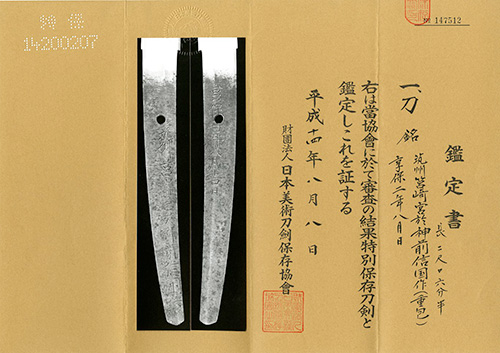 № 147512
特保
14200207
鑑定書
一、刀 銘 筑州筥崎宮於神前信国作(重包)
享保二年八月日
長二尺口六分半
右は當協會に於て審査の結果特別保存刀剣と
鑑定しこれを証する
平成十四年八月八日
財團法人 日本美術刀剣保存協會